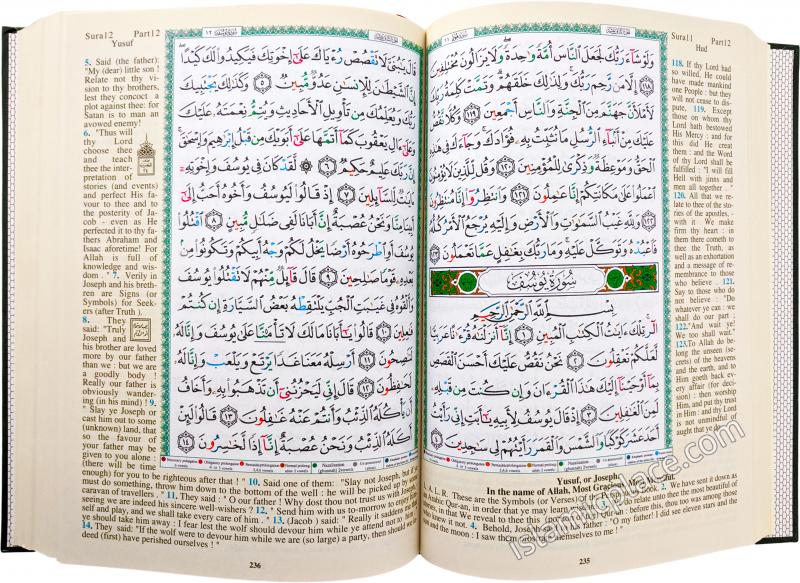 Sura11 Part12
Hud
وَلَوْ شَآءَ رَبُّكَ لَجَعَلَ ٱلنَّاسَ أُمَّةً وَٰحِدَةً وَلَا يَزَالُونَ مُخْتَلِفِينَ
١١٨ إِلَّا مَن رَّحِمَ رَبُّكَ وَلِذَٰلِكَ خَلَقَهُمْ وَتَمَّتْ كَلِمَةُ رَبِّكَ
لَأَمْلَأَنَّ جَهَنَّمَ مِنَ ٱلْجِنَّةِ وَٱلنَّاسِ أَجْمَعِينَ ١١٩ وَكُلًّا نَّقُصُّ
عَلَيْكَ مِنْ أَنۢبَآءِ ٱلرُّسُلِ مَا نُثَبِّتُ بِهِۦ فُؤَادَكَ وَجَآءَكَ فِى هَٰذِهِ
ٱلْحَقُّ وَمَوْعِظَةٌ وَذِكْرَىٰ لِلْمُؤْمِنِينَ ١٢٠ وَقُل لِّلَّذِينَ لَا يُؤْمِنُونَ
ٱعْمَلُوا۟ عَلَىٰ مَكَانَتِكُمْ إِنَّا عَٰمِلُونَ ١٢١ وَٱنتَظِرُوٓا۟ إِنَّا مُنتَظِرُونَ
١٢٢ وَلِلَّهِ غَيْبُ ٱلسَّمَٰوَٰتِ وَٱلْأَرْضِ وَإِلَيْهِ يُرْجَعُ ٱلْأَمْرُ كُلُّهُۥ
فَٱعْبُدْهُ وَتَوَكَّلْ عَلَيْهِ وَمَا رَبُّكَ بِغَٰفِلٍ عَمَّا تَعْمَلُونَ ١٢٣
سُورَةُ يُوسُفَ
بِسْمِ ٱللَّهِ ٱلرَّحْمَٰنِ ٱلرَّحِيمِ
الٓر تِلْكَ ءَايَٰتُ ٱلْكِتَٰبِ ٱلْمُبِينِ ١ إِنَّآ أَنزَلْنَٰهُ قُرْءَٰنًا عَرَبِيًّا
لَّعَلَّكُمْ تَعْقِلُونَ ٢ نَحْنُ نَقُصُّ عَلَيْكَ أَحْسَنَ ٱلْقَصَصِ
بِمَآ أَوْحَيْنَآ إِلَيْكَ هَٰذَا ٱلْقُرْءَانَ وَإِن كُنتَ مِن قَبْلِهِۦ
لَمِنَ ٱلْغَٰفِلِينَ ٣ إِذْ قَالَ يُوسُفُ لِأَبِيهِ يَٰٓأَبَتِ إِنِّى رَأَيْتُ
أَحَدَ عَشَرَ كَوْكَبًا وَٱلشَّمْسَ وَٱلْقَمَرَ رَأَيْتُهُمْ لِى سَٰجِدِينَ ٤
118. If thy Lord
had so willed, He
could have made
mankind one
People : but they
will not cease to
dispute, 119. Except
those on whom thy
Lord hath bestowed
His Mercy : and for
this did He create
them : and the Word
of thy Lord shall be
fulfilled : "I will fill
Hell with jinns and
men all together . "
120. All that we re-
late to thee of the
stories of the
apostles, - with it
We make firm thy
heart : in them there
cometh to thee the
Truth, as well as an
exhortation and a
message of re-
membrance to those
who believe . 121.
Say to those who do
not believe : "Do
whatever ye can : we
shall do our part ;
122."And wait ye!
We too shall wait."
123.To Allah do be-
long the unseen (se-
crets) of the heavens
and the earth, and to
Him goeth back ev-
ery affair (for deci-
sion) : then worship
Him, and put thy trust
in Him : and thy Lord
is not unmindful of
aught that ye do .
Yusuf, or Joseph
In the name of Allah, Most Gracious, Most Merciful.
1. A. L. R. These are the Symbols (or Verses) of
2. We have sent it down as
an Arabic Qur-an, in order that ye may learn
relate unto thee the most beautiful of
stories, in that We reveal to this
before this, thou too was among those who
knew it not . 4. Behold, Joseph
father : "O my father ! I did see eleven stars and the
sun and the moon : I saw them prostrate themselves to me ! "
235
Sura12 Part12
Yusuf
قَالَ يَٰبُنَىَّ لَا تَقْصُصْ رُءْيَاكَ عَلَىٰٓ إِخْوَتِكَ فَيَكِيدُوا۟ لَكَ كَيْدًا
إِنَّ ٱلشَّيْطَٰنَ لِلْإِنسَٰنِ عَدُوٌّ مُّبِينٌ ٥ وَكَذَٰلِكَ يَجْتَبِيكَ
رَبُّكَ وَيُعَلِّمُكَ مِن تَأْوِيلِ ٱلْأَحَادِيثِ وَيُتِمُّ نِعْمَتَهُۥ عَلَيْكَ
وَعَلَىٰٓ ءَالِ يَعْقُوبَ كَمَآ أَتَمَّهَا عَلَىٰٓ أَبَوَيْكَ مِن قَبْلُ إِبْرَٰهِيمَ وَإِسْحَٰقَ
إِنَّ رَبَّكَ عَلِيمٌ حَكِيمٌ ٦ لَّقَدْ كَانَ فِى يُوسُفَ وَإِخْوَتِهِۦٓ
ءَايَٰتٌ لِّلسَّآئِلِينَ ٧ إِذْ قَالُوا۟ لَيُوسُفُ وَأَخُوهُ أَحَبُّ إِلَىٰٓ
أَبِينَا مِنَّا وَنَحْنُ عُصْبَةٌ إِنَّ أَبَانَا لَفِى ضَلَٰلٍ مُّبِينٍ ٨ ٱقْتُلُوا۟
يُوسُفَ أَوِ ٱطْرَحُوهُ أَرْضًا يَخْلُ لَكُمْ وَجْهُ أَبِيكُمْ وَتَكُونُوا۟ مِنۢ
بَعْدِهِۦ قَوْمًا صَٰلِحِينَ ٩ قَالَ قَآئِلٌ مِّنْهُمْ لَا تَقْتُلُوا۟ يُوسُفَ
وَأَلْقُوهُ فِى غَيَٰبَتِ ٱلْجُبِّ يَلْتَقِطْهُ بَعْضُ ٱلسَّيَّارَةِ إِن كُنتُمْ
فَٰعِلِينَ ١٠ قَالُوا۟ يَٰٓأَبَانَا مَا لَكَ لَا تَأْمَ۫نَّا عَلَىٰ يُوسُفَ وَإِنَّا لَهُۥ
لَنَٰصِحُونَ ١١ أَرْسِلْهُ مَعَنَا غَدًا يَرْتَعْ وَيَلْعَبْ وَإِنَّا لَهُۥ
لَحَٰفِظُونَ ١٢ قَالَ إِنِّى لَيَحْزُنُنِىٓ أَن تَذْهَبُوا۟ بِهِۦ وَأَخَافُ
أَن يَأْكُلَهُ ٱلذِّئْبُ وَأَنتُمْ عَنْهُ غَٰفِلُونَ ١٣ قَالُوا۟ لَئِنْ
أَكَلَهُ ٱلذِّئْبُ وَنَحْنُ عُصْبَةٌ إِنَّآ إِذًا لَّخَٰسِرُونَ ١٤
5. Said (the father):
"My (dear) little son !
Relate not thy vi-
sion to thy brothers,
lest they concoct a
plot against thee: for
Satan is to man an
avowed enemy!
6. "Thus will
thy Lord
choose thee
and teach
thee the inter-
pretation of
stories (and events)
and perfect His fa-
vour to thee and to
the posterity of Ja-
cob – even as He
perfected it to thy fa-
thers Abraham and
Isaac aforetime! For
Allah is full of
knowledge and wis-
dom . " 7. Verily in
Joseph and his breth-
ren are Signs (or
Symbols) for Seek-
ers (after Truth ).
8. They
said: "Truly
Joseph and
his brother are loved
more by our father
than we : but we are
a goodly body !
Really our father is
obviously wander-
ing (in his mind) ! 9.
" Slay ye Joseph or
cast him out to some
(unknown) land, that
so the favour of
your father may be
given to you alone :
(there will be time
enough) for you to be righteous after that ! " 10. Said one of them: "Slay not Joseph, but if ye
must do something, throw him down to the bottom of the well : he will be picked up by some
caravan of travellers . " 11. They said : " O our father ! Why dost thou not trust us with Joseph,
seeing we are indeed his sincere well-wishers? 12. " Send him with us to-morrow to enjoy him-
self and play, and we shall take every care of him . " 13. (Jacob ) said: "Really it saddens me that
ye should take him away : I fear lest the wolf should devour him while ye attend not to him."
14. They said: "If the wolf were to devour him while we are (so large) a party, then should we in-
deed (first) have perished ourselves ! "
236
islamicplace.com